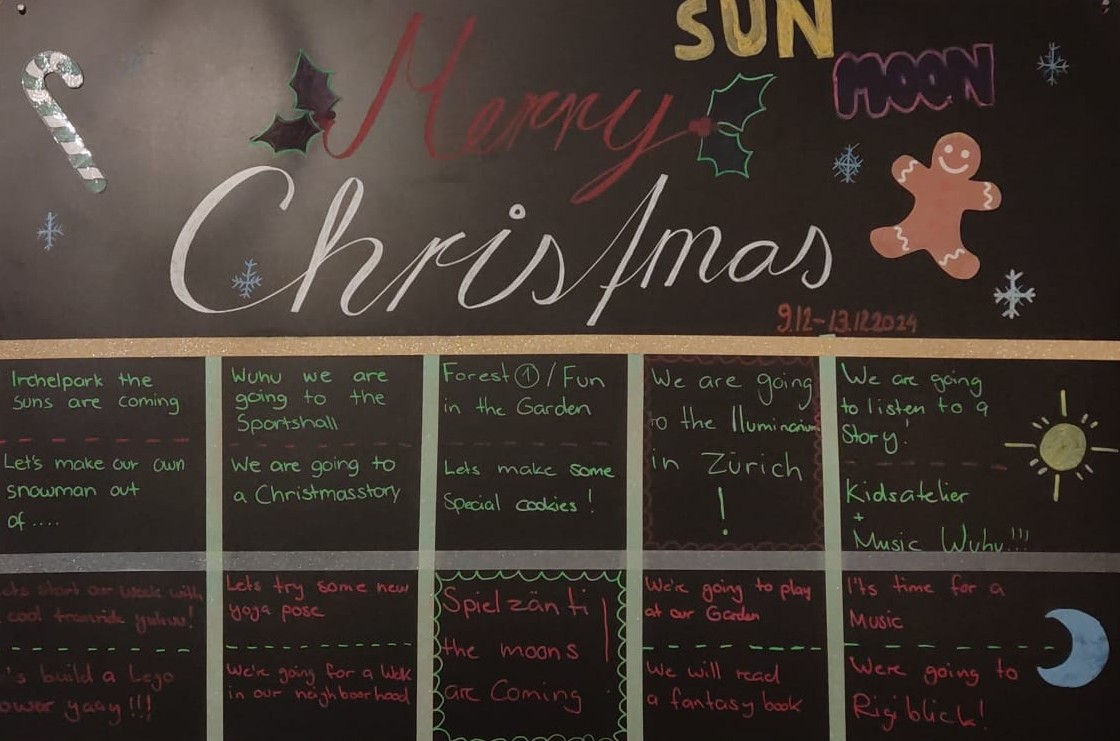 SUN
MOON
Merry
Christmas
9.12-13.12.2024
Irchelpark the
suns are coming
Let's make our own
snowman out
of....
Wuhu we are
going to the
Sportshall
We are going to
a Christmasstory
Forest ① / Fun
in the Garden
Lets make some
Special cookies!
We are going
to the Iluminarium
in Zürich
!
We are going
to listen to a
Story!
Kidsatelier
+
Music Wuhu!!!
ets start our week with
cool tramride yuhuu!
's build a Lego
ower yaay!!!
Lets try some new
yoga pose
We're going for a Walk
in our neighboorhood
Spielzänti
the moons
are Coming
!
We're going to play
at our Garden
We will read
a fantasy book
I'ts time for a
Music
We're going to
Rigiblick!